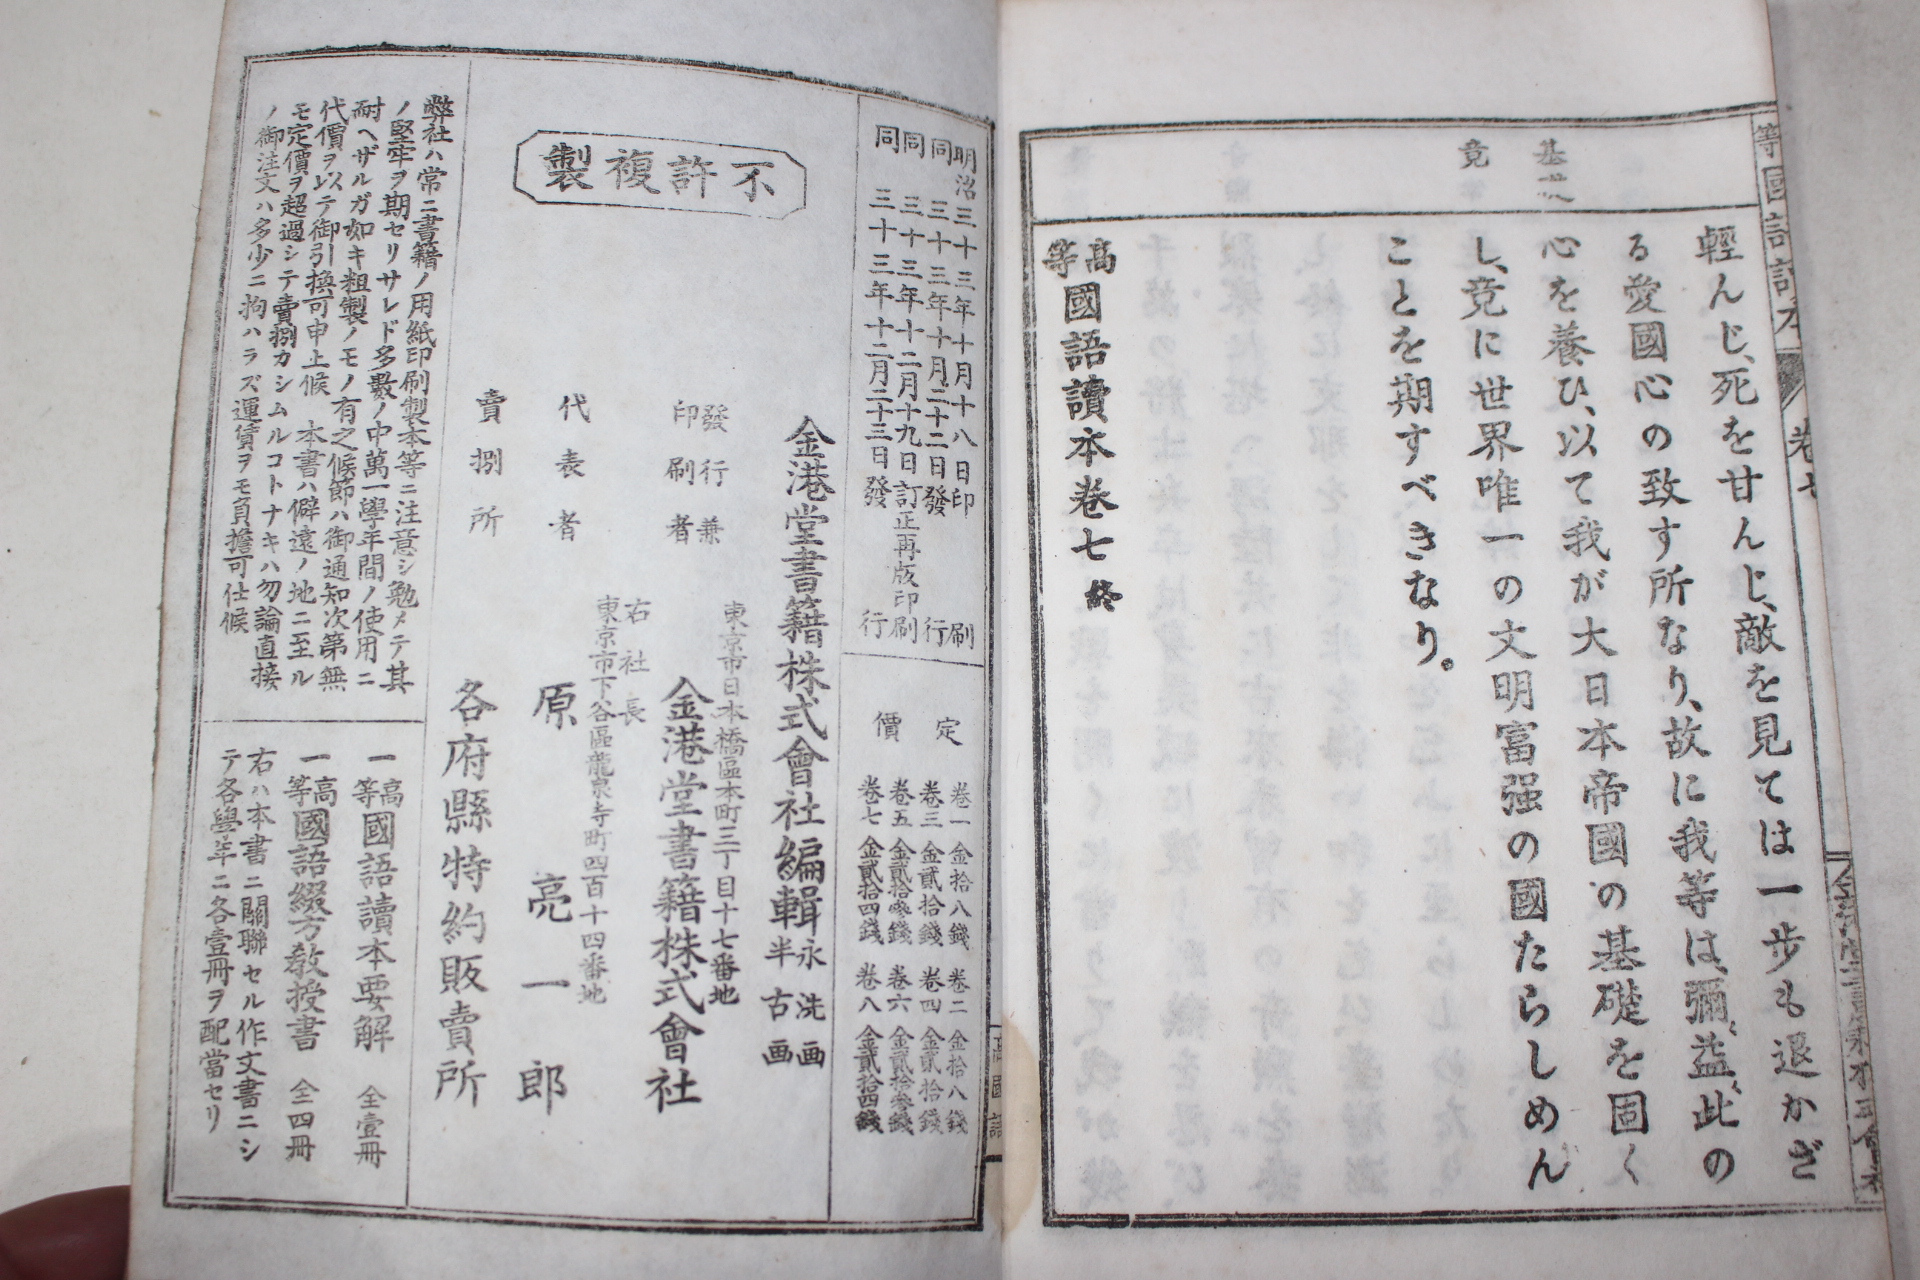 等國語讀本
卷七
基礎
竟
輕んじ、死を甘んじ、敵を見ては一歩も退かざ
る愛國心の致す所なり、故に我等は、彌〻益〻此の
心を養ひ、以て我が大日本帝國の基礎を固く
し、竟に世界唯一の文明富强の國たらしめん
ことを期すべきなり。
高等國語讀本卷七終
明治三十三年十月十八日印刷
同三十三年十月二十二日發行
同三十三年十二月十九日訂正再版印刷
同三十三年十二月二十三日發行
定價
卷一金拾八錢卷二金拾八錢
卷三金貳拾錢卷四金貳拾錢
卷五金貳拾參錢卷六金貳拾參錢
卷七金貳拾四錢卷八金貳拾四錢
不許複製
金港堂書籍株式會社編輯
永洗画
半古画
東京市日本橋區本町三丁目十七番地
發行兼印刷者
金港堂書籍株式會社
右社長
東京市下谷區龍泉寺町四百十四番地
代表者
原亮一郎
賣捌所
各府縣特約販賣所
弊社ハ常ニ書籍ノ用紙印刷製本等ニ注意シ勉メテ其
ノ堅牢ヲ期セリサレド多數ノ中萬一學年間ノ使用ニ
耐ヘザルガ如キ粗製ノモノ有之候節ハ御通知次第無
代價ヲ以テ御引換可申上候 本書ハ僻遠ノ地ニ至ル
モ定價ヲ超過シテ賣捌カシムルコトナキハ勿論直接
ノ御注文ハ多少ニ拘ハラズ運賃ヲモ負擔可仕候
一高等國語讀本要解 全壹冊
一高等國語綴方敎授書 全四冊
右ハ本書ニ關聯セル作文書ニシ
テ各學年ニ各壹冊ヲ配當セリ